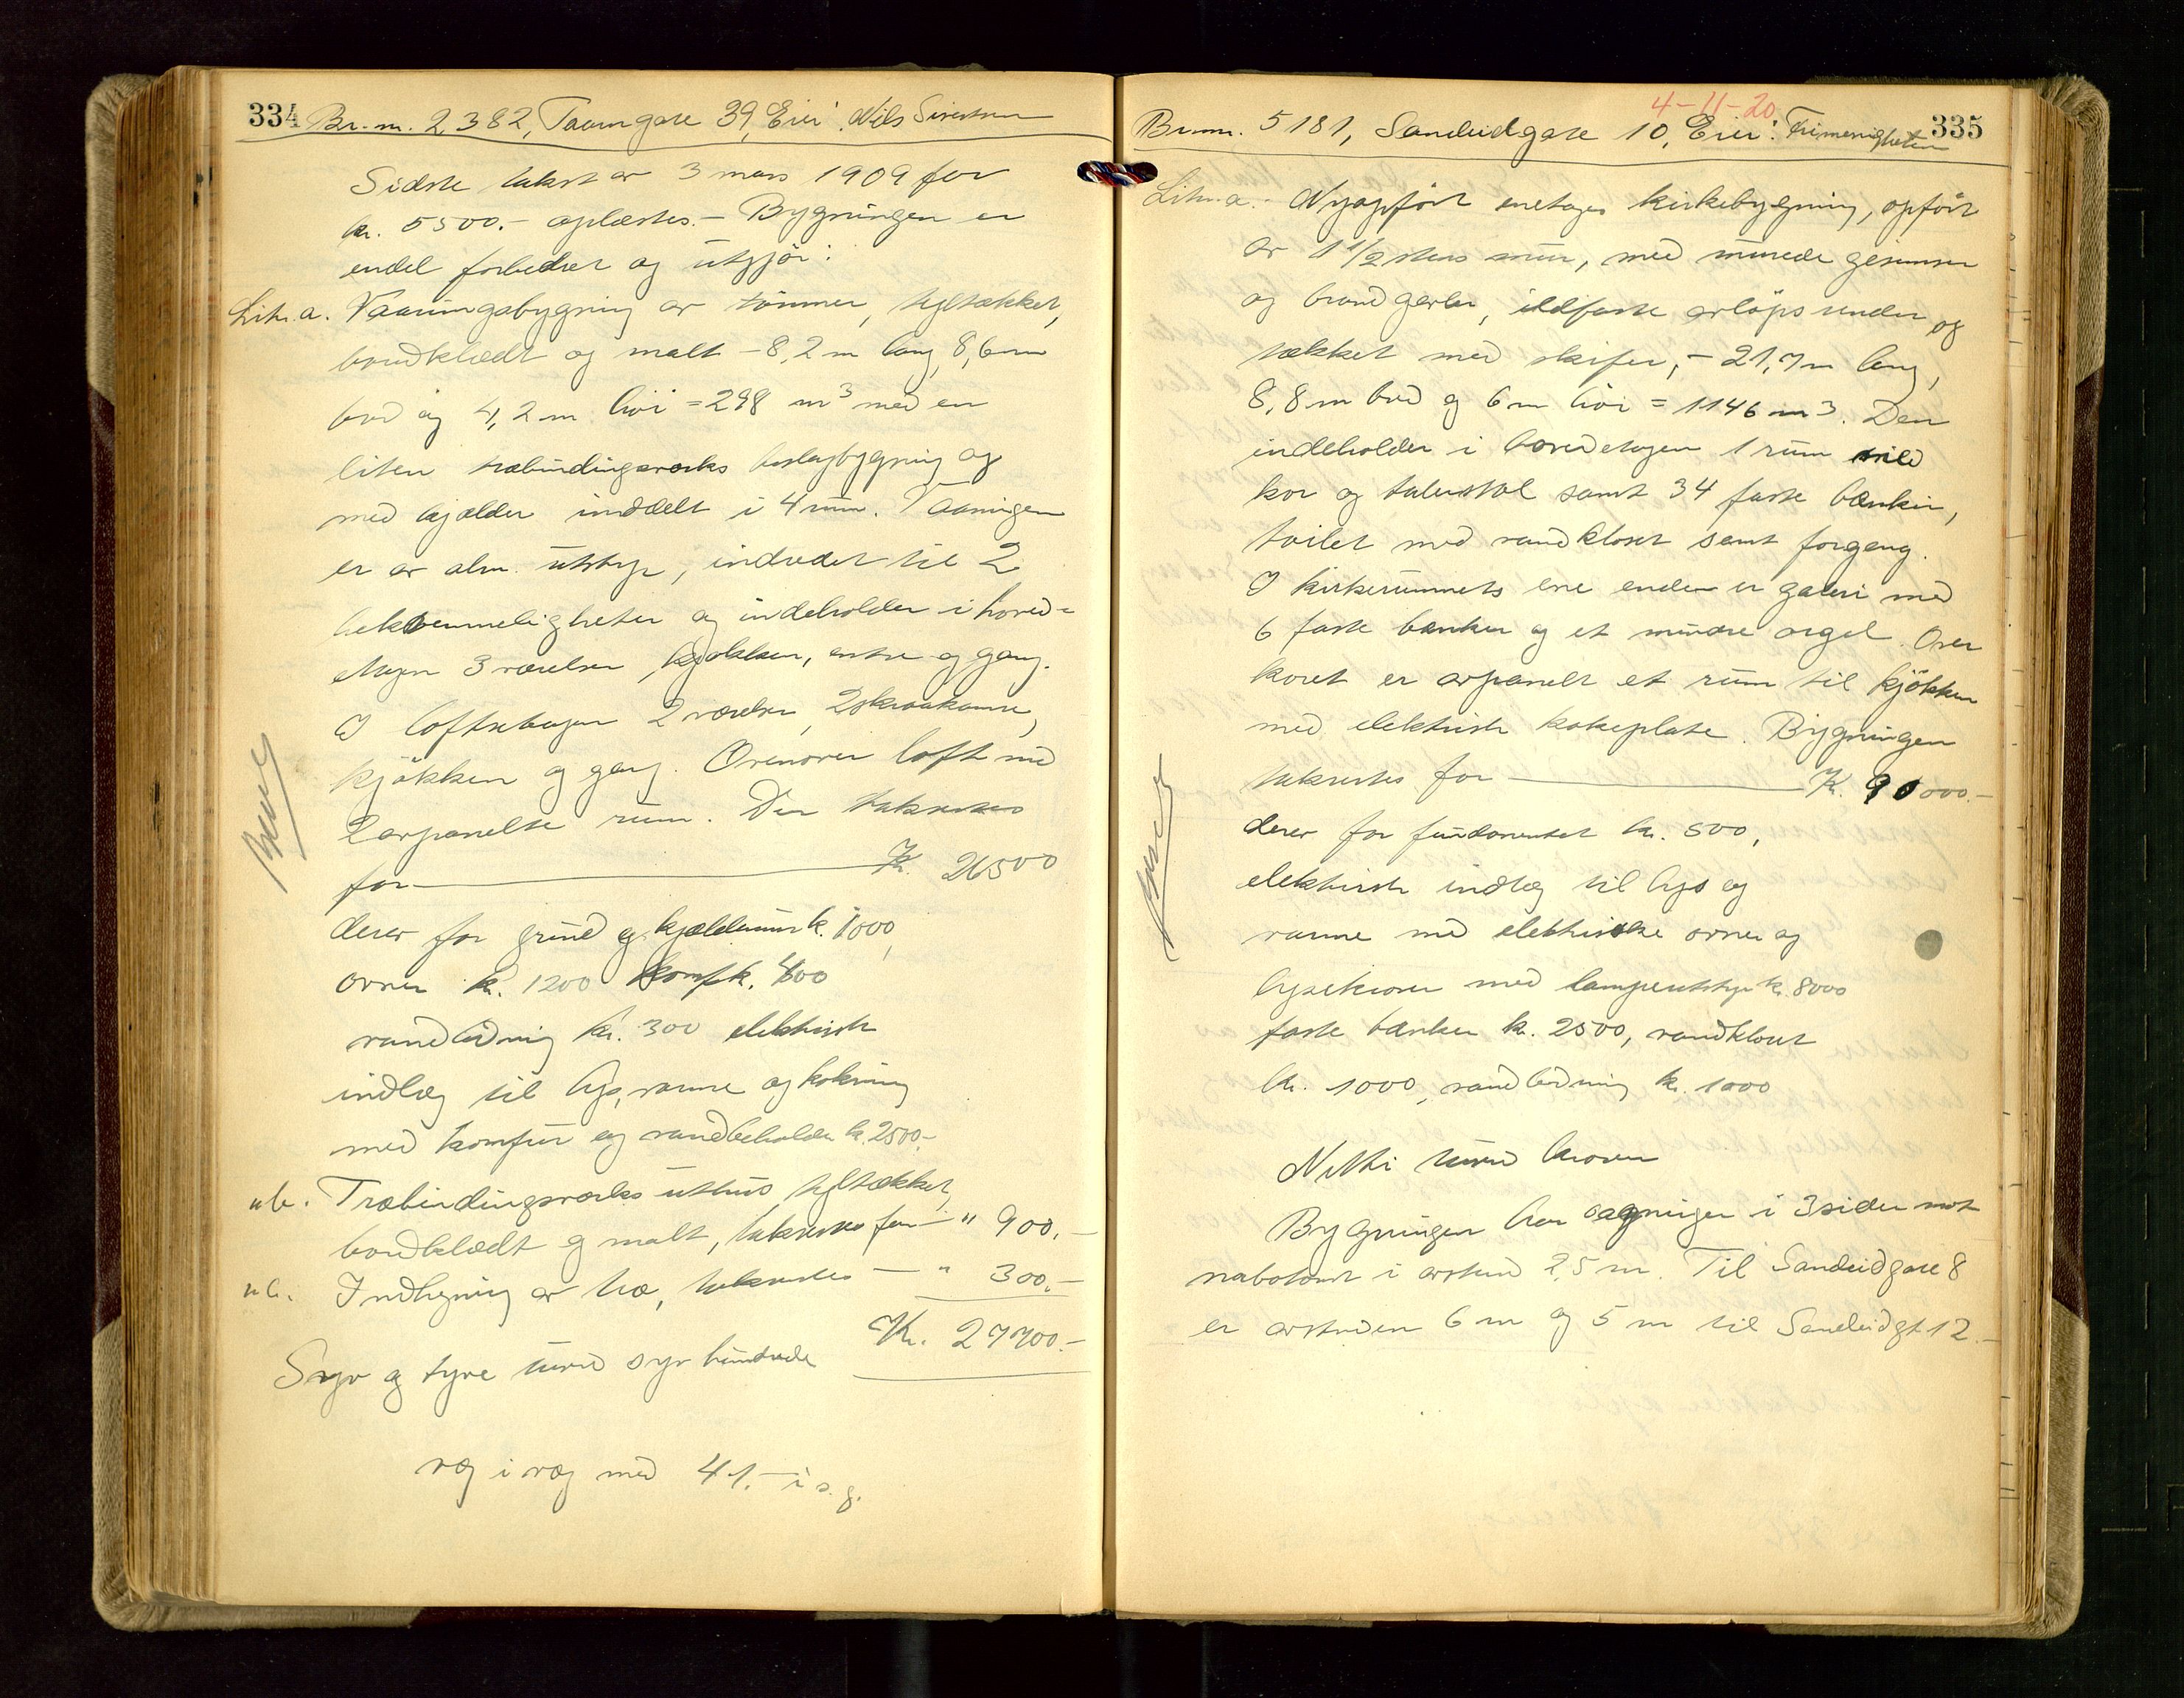 334 Br. nr. 2382, Taarngate 39, Eier: Nils Sivertsen
Sidste takst av 3 mars 1909 for
kr. 5500.- oplæstes.- Bygningen er
endel forbedret og utgjör:
Litr. a. Vaaningsbygning av tömmer, tegltækket,
bordklædt og malt - 8,2 m lang, 8,6 m
bred og 4,2 m höi = 298 m3 med en
liten træbindingsverks bislagbygning og
med kjælder inddelt i 4 rum. Vaaningen
er av alm. utstyr, indredet til 2
bekvemmeligheter og indeholder i hoved-
etagen 3 værelser, kjökken, entre og gang.
I loftsetagen 2 værelser, 2 skraakamre,
kjökken og gang. Ovenover loft med
2 avpanelte rum. Den takseres
for Kr. 26500
derav for grund og kjældermur k. 1000,
ovner k. 1200 komf k. 400
vandledning kr. 300 elektrisk
indlæg til lys, varme og kokning
med komfur og vandbeholder k. 2500.-
" b. Træbindingsverks uthus, tegltækket,
bordklædt og malt, takseres for - " 900.-
" c. Indhegning av træ, takseres - " 300.-
Kr. 27700.-
Syv og tyve tusind syv hundrede
væg i væg med 41.- i s. g.
4-11-20
Br.nr. 5181, Sandeidgate 10, Eier: Frimenigheten 335
Litr. a. Nyopfört enetages kirkebygning, opfört
av 1 1/2 stens mur, med murede gesimser
og brandgavler, ildfaste avlöpsrender og
tækket med skifer, - 21,7 m lang,
8,8 m bred og 6 m höi = 1146 m3. Den
indeholder i hovedetagen 1 rum med
kor og talerstol samt 34 faste bænker,
toilet med vandkloset samt forgang.
I kirkerummets ene ende er galeri med
6 faste bænker og et mindre orgel. Over
koret er avpanelt et rum til kjökken
med elektrisk kokeplate. Bygningen
takseres for Kr. 90000.-
derav for fundamentet kr. 500,
elektrisk indlæg til lys og
varme med elektriske ovner og
lysekroner med lampeutstyr k. 8000
faste bænker k. 2500, vandkloset
kr. 1000, vandledning k. 1000
Nitti tusind kroner
Bygningen har aapninger i 3 sider mot
nabotomt i avstand 2,5 m. Til Sandeidgate 8
er avstanden 6 m og 5 m til Sandeidgt 12.-